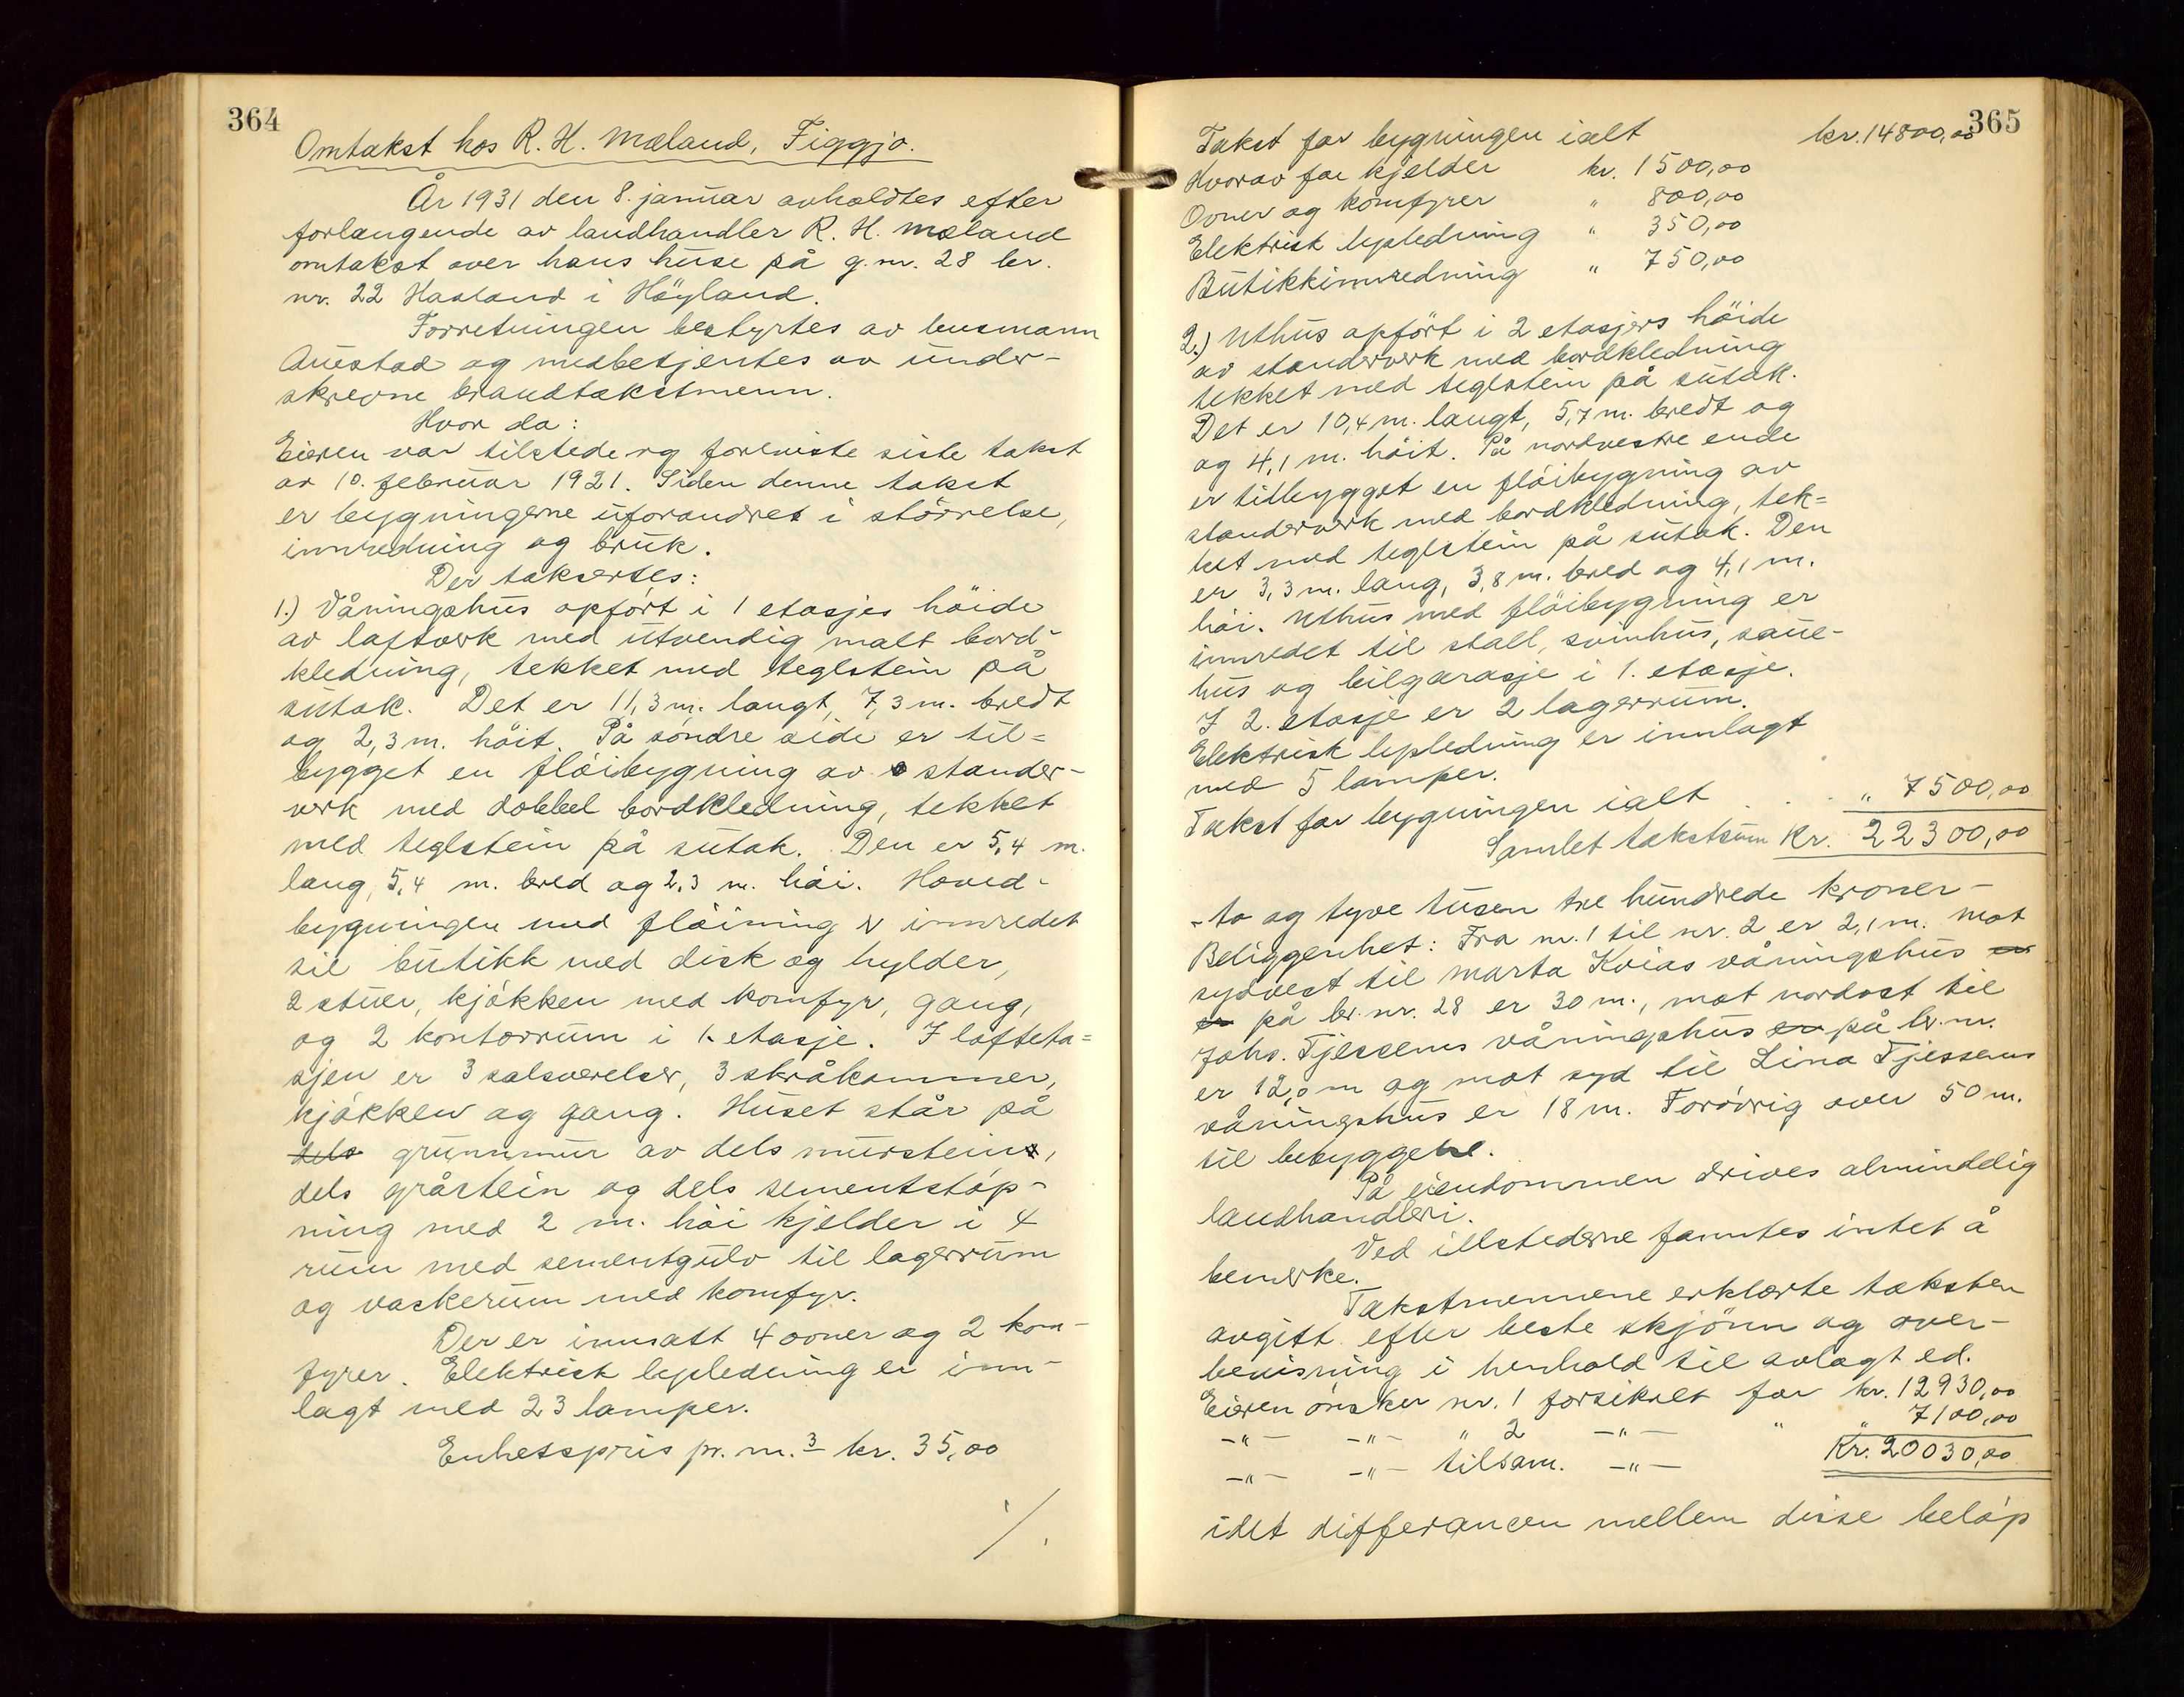 364
Omtakst hos R. H. Mæland, Figgjo.
År 1931 den 8. januar avholdtes efter
forlangende av landhandler R. H. Mæland
omtakst over hans huse på g.nr. 28 br.
nr. 22 Haaland i Høyland.
Forretningen bestyrtes av lensmann
Auestad og medbetjentes av under-
skrevne brandtakstmenn.
Hvor da:
Eieren var tilstede og foreviste siste takst
av 10. februar 1921. Siden denne takst
er bygningerne uforandret i størrelse,
innredning og bruk.
Der taksertes:
1.) Våningshus opført i 1 etasjes høide
av laftverk med utvendig malt bord-
kledning, tekket med teglstein på
sutak. Det er 11,3 m. langt, 7,3 m. bredt
og 2,3 m. høit. På søndre side er til=
bygget en fløibygning av stander-
verk med dobbel bordkledning, tekket
med teglstein på sutak. Den er 5,4 m.
lang, 5,4 m. bred og 2,3 m. høi. Hoved-
bygningen med fløining er innredet
til butikk med disk og hylder,
2 stuer, kjøkken med komfyr, gang,
og 2 kontorrum i 1. etasje. I lofteta=
sjen er 3 salsværelser, 3 skråkammer,
kjøkken og gang. Huset står på
dels grunnmur av dels murstein,
dels gråstein og dels sementstøp-
ning med 2 m. høi kjelder i 4
rum med sementgulv til lagerrum
og vaskerum med komfyr.
Der er innsatt 4 ovner og 2 kom-
fyrer. Elektrisk lysledning er inn-
lagt med 23 lamper.
Enhetspris pr. m.3 kr. 35,00
./.
365
Takst for bygningen ialt kr. 14800,00
Hvorav for kjelder kr. 1500,00
Ovner og komfyrer " 800,00
Elektrisk lysledning " 350,00
Butikkinnredning " 750,00
2.) Uthus opført i 2 etasjers høide
av standerverk med bordkledning
tekket med teglstein på sutak.
Det er 10,4 m. langt, 5,7 m. bredt og
og 4,1 m. høit. På nordvestre ende
er tilbygget en fløibygning av
standerverk med bordkledning, tek=
ket med teglstein på sutak. Den
er 3,3 m. lang, 3,8 m. bred og 4,1 m.
høi. Uthus med fløibygning er
innredet til stall, svinhus, saue-
hus og bilgarasje i 1. etasje.
I 2. etasje er 2 lagerrum.
Elektrisk lysledning er innlagt
med 5 lamper.
Takst for bygningen ialt . . . " 7500,00
Samlet takstsum Kr. 22300,00
-to og tyve tusen tre hundrede kroner-
Beliggenhet: Fra nr. 1 til nr. 2 er 2,1 m. mot
sydvest til Marta Kvias våningshus er
er på br.nr. 28 er 30 m., mot nordost til
Johs. Tjessems våningshus er på br.nr.
er 12,0 m og mot syd til Lina Tjessems
våningshus er 18 m. Forøvrig over 50 m.
til bebyggelse.
På eiendommen drives almindelig
landhandleri.
Ved ildstederne fanntes intet å
bemerke.
Takstmennene erklærte taksten
avgitt efter beste skjønn og over-
bevisning i henhold til avlagt ed.
Eieren ønsker nr. 1 forsikret for kr. 12930,00
-"- -"- " 2 -"- " " 7100,00
-"- -"- tilsam. -"- Kr. 20030,00
idet differancen mellem disse beløp